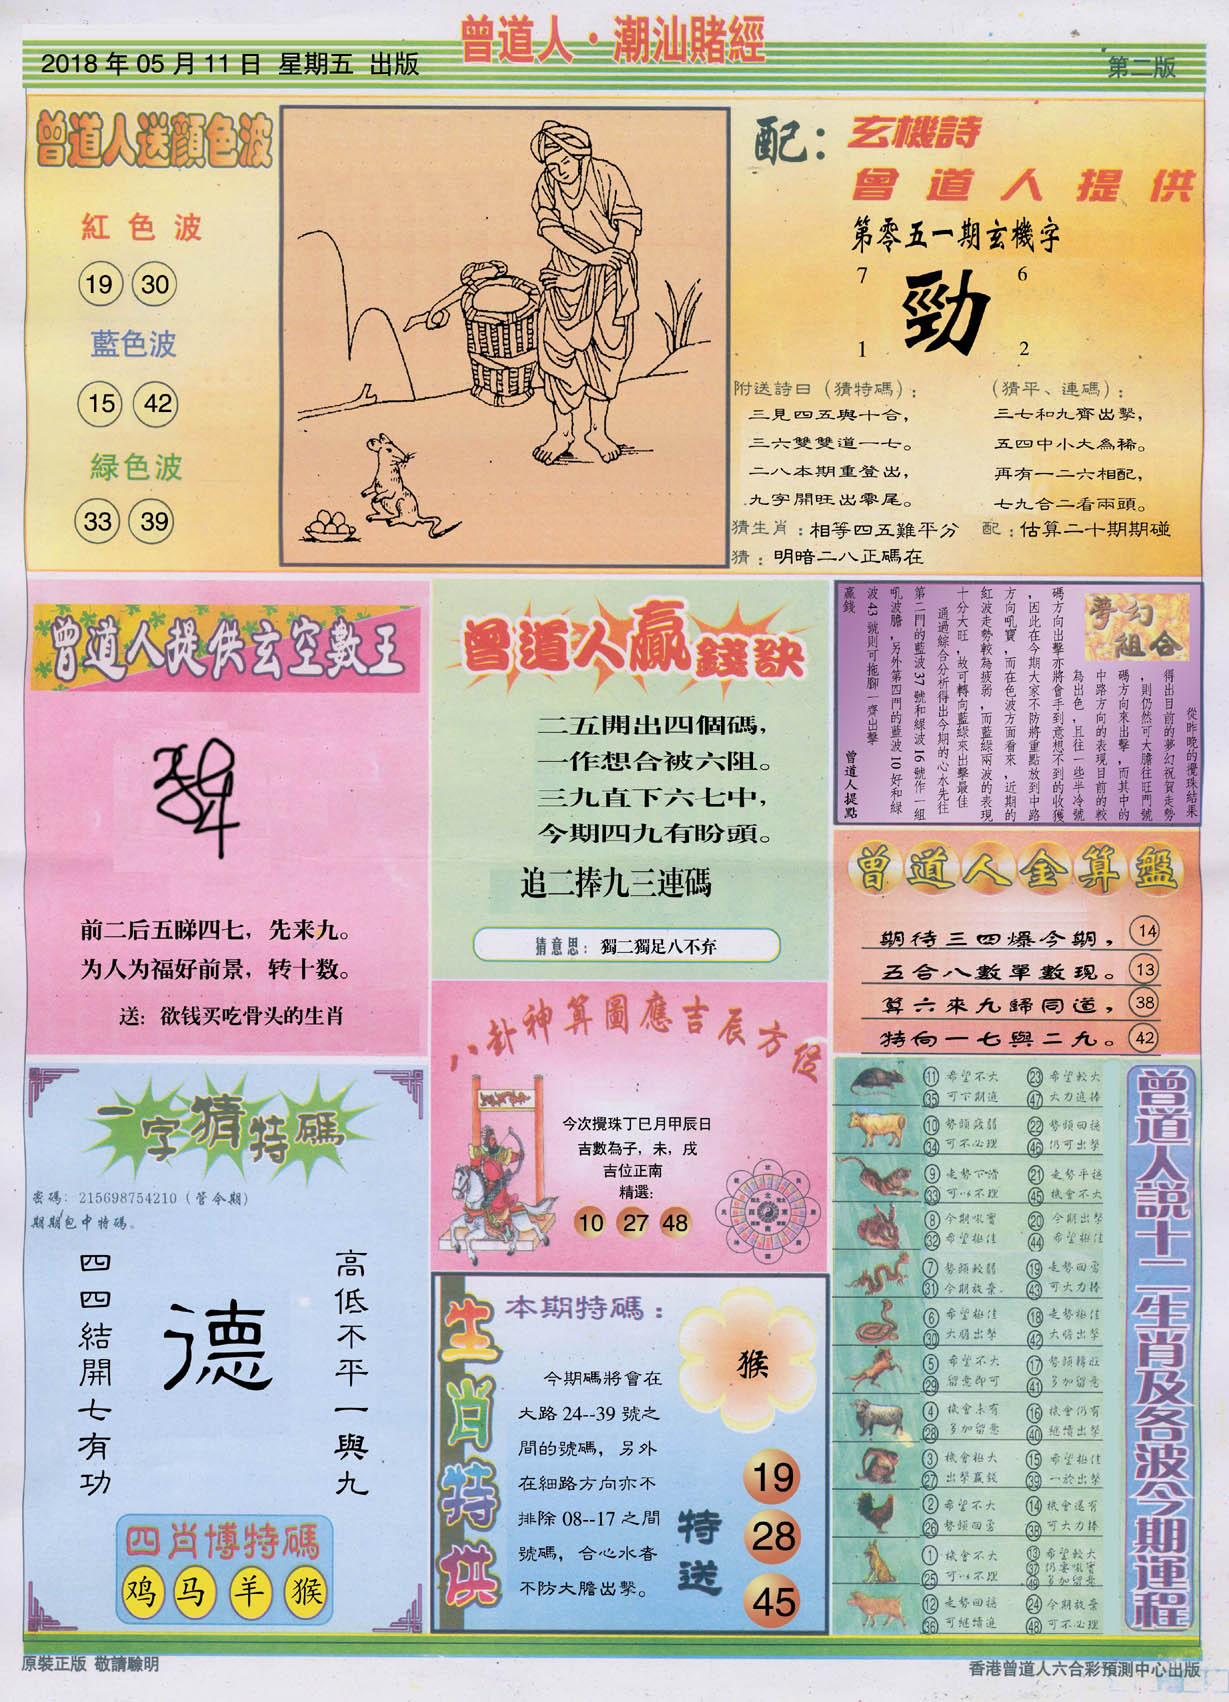 曾道人·潮汕賭經
2018 年 05 月 11 日 星期五 出版
第二版
曾道人送顔色波
紅色波
19 30
藍色波
15 42
緑色波
33 39
配：玄機詩
曾道人提供
第零五一期玄機字
7 6
勁
1 2
附送詩日（猜特碼）：
三見四五與十合，
三六雙雙道一七。
二八本期重登出，
九字開旺出零尾。
（猜平、連碼）：
三七和九齊出擊，
五四中小大為稀。
再有一二六相配，
七九合二看兩頭。
猜生肖：相等四五難平分
配：估算二十期期碰
猜：明暗二八正碼在
曾道人提供玄空數王
前二后五睇四七，先来九。
为人为福好前景，转十数。
送：欲钱买吃骨头的生肖
曾道人贏錢訣
二五開出四個碼，
一作想合被六阻。
三九直下六七中，
今期四九有盼頭。
追二捧九三連碼
猜意思：獨二獨足八不弃
夢幻組合
從昨晚的攪珠結果
得出目前的夢幻祝賀走勢
，則仍然可大膽往旺門號
碼方向來出擊，而其中的
中路方向的表現目前的較
為出色，且往一些半冷號
碼方向出擊亦將會手到意想不到的收獲
，因此在今期大家不防將重點放到中路
方向吼寶，而在色波方面看來，近期的
紅波走勢較為疲弱，而藍綠兩波的表現
十分大旺，故可轉向藍綠來出擊最佳
通過綜合分析得出今期的心水先往
第二門的藍波 37 號和綠波 16 號作一組
吼波膽，另外第四門的藍波 10 好和綠
波 43 號則可拖腳一齊出擊
贏錢
曾道人提點
曾道人金算盤
期待三四爆今期， 14
五合八數單數現。 13
算六來九歸同道， 38
特向一七與二九。 42
八卦神算圖應吉辰方位
今次攪珠丁巳月甲辰日
吉數為子，未，戌
吉位正南
精選：
10 27 48
一字猜特碼
密碼：215698754210（管今期）
期期包中特碼。
高低不平一與九
德
四四結開七有功
四肖博特碼
鸡 马 羊 猴
生肖特供
本期特碼：
猴
今期碼將會在
大路 24--39 號之
間的號碼，另外
在細路方向亦不
排除 08--17 之間
號碼，合心水者
不防大膽出擊。
特送
19
28
45
曾道人説十二生肖及各波今期運程
11 希望不大 23 希望較大
35 可下期追 47 大力追捧
10 勢頭疲弱 22 勢頭回穩
34 可不必理 46 仍可出擊
9 走勢下滑 21 走勢平穩
33 可以不理 45 機會不大
8 今期吼寶 20 今期出擊
32 希望極佳 44 希望極佳
7 勢頭較弱 19 走勢回勇
31 今期放棄 43 可大力捧
6 希望極佳 18 走勢極佳
30 大膽出擊 42 大膽出擊
5 希望不大 17 勢頭轉旺
29 留意即可 41 多加留意
4 機會未有 16 機會仍有
28 多加留意 40 繼續出擊
3 機會極大 15 希望極佳
27 出擊贏錢 39 一於出擊
2 希望不大 14 機會還有
26 勢頭回勇 38 可大力捧
1 機會不大 13 希望較大
25 可以不理 37 仍要吼寶
49 多加留意
12 走勢回穩 24 今期放棄
36 可繼續追 48 可不必理
原裝正版 敬請驗明
香港曾道人六合彩預測中心出版